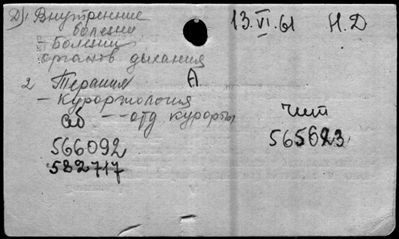 Д) Внутренние
болезни
Болезни
органов дыхания
2 Терапия А
- Курортология
Об --- отд курорты
566092
532717
13.VI.61 Н.Д
Чит
565623